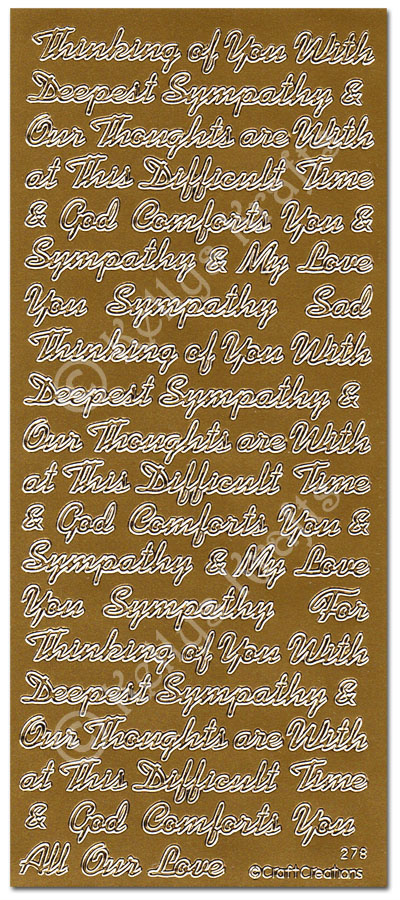 Thinking of You With
Deepest Sympathy &
Our Thoughts are With
at This Difficult Time
& God Comforts You &
Sympathy & My Love
You Sympathy Sad
Thinking of You With
Deepest Sympathy &
Our Thoughts are With
at This Difficult Time
& God Comforts You &
Sympathy & My Love
You Sympathy For
Thinking of You With
Deepest Sympathy &
Our Thoughts are With
at This Difficult Time
& God Comforts You
All Our Love
278
©CraftCreations
© Kellys Krafts
© Kellys Krafts